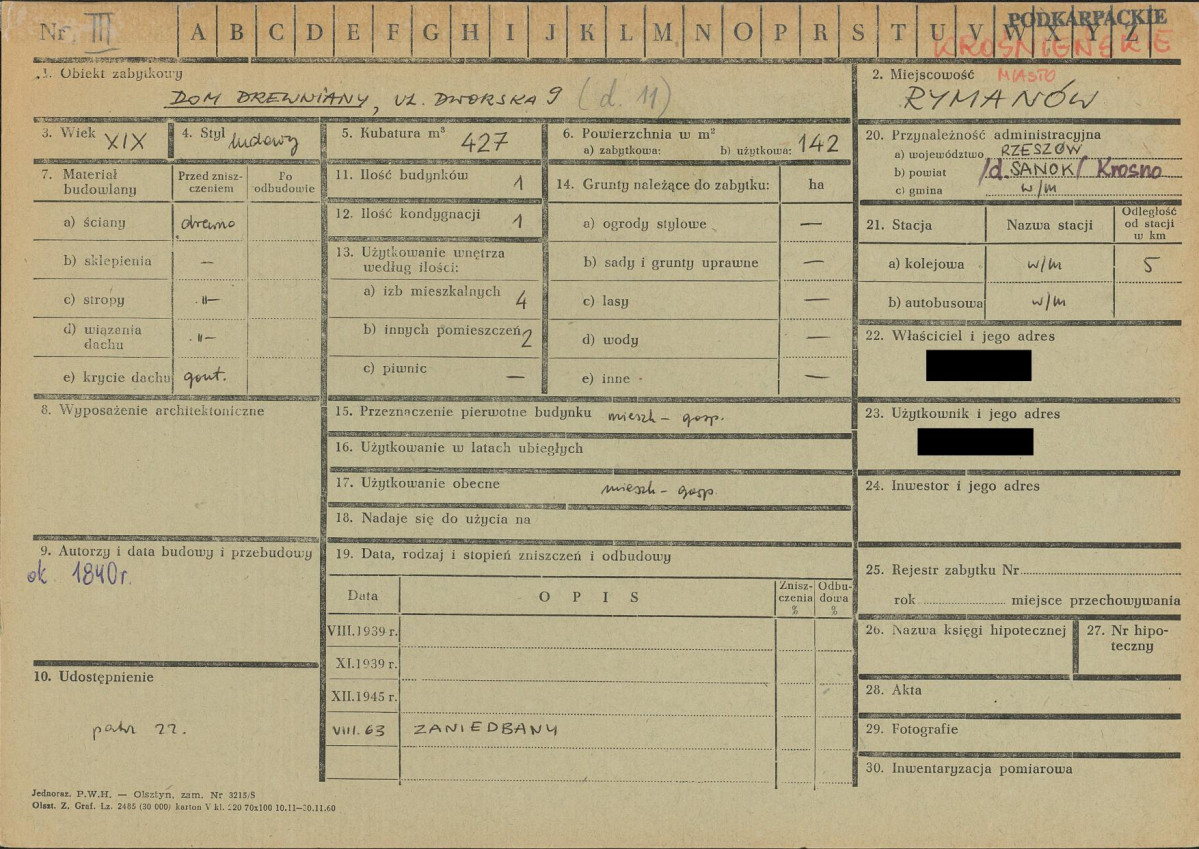 Nr. III A B C D E F G H I J K L M N O P R S T U V W X Y Z
PODKARPACKIE
KROŚNIEŃSKIE
1. Obiekt zabytkowy
DOM DREWNIANY, UL. DWORSKA 9 (d. 11)
2. Miejscowość MIASTO
RYMANÓW
3. Wiek XIX
4. Styl ludowy
5. Kubatura m³ 427
6. Powierzchnia w m²
a) zabytkowa: b) użytkowa: 142
20. Przynależność administracyjna
a) województwo RZESZÓW
b) powiat /d. SANOK/ Krosno
c) gmina w/m
7. Materiał budowlany
Przed zniszczeniem
Po odbudowie
a) ściany drewno
b) sklepienia —
c) stropy -"-
d) wiązenia dachu -"-
e) krycie dachu gont.
11. Ilość budynków 1
12. Ilość kondygnacji 1
13. Użytkowanie wnętrza
według ilości:
a) izb mieszkalnych 4
b) innych pomieszczeń 2
c) piwnic —
14. Grunty należące do zabytku: ha
a) ogrody stylowe —
b) sady i grunty uprawne —
c) lasy —
d) wody —
e) inne —
21. Stacja Nazwa stacji Odległość od stacji w km
a) kolejowa w/m 5
b) autobusowa w/m
22. Właściciel i jego adres
23. Użytkownik i jego adres
24. Inwestor i jego adres
8. Wyposażenie architektoniczne
15. Przeznaczenie pierwotne budynku mieszk - gosp.
16. Użytkowanie w latach ubiegłych
17. Użytkowanie obecne mieszk - gosp.
18. Nadaje się do użycia na
9. Autorzy i data budowy i przebudowy
ok. 1840 r.
19. Data, rodzaj i stopień zniszczeń i odbudowy
Data OPIS Zniszczenia % Odbudowa %
VIII.1939 r.
XI.1939 r.
XII.1945 r.
VIII. 63 ZANIEDBANY
10. Udostępnienie
patrz 22.
25. Rejestr zabytku Nr
rok miejsce przechowywania
26. Nazwa księgi hipotecznej
27. Nr hipoteczny
28. Akta
29. Fotografie
30. Inwentaryzacja pomiarowa
Jednoraz. P.W.H. — Olsztyn, zam. Nr 3215/S
Olszt. Z. Graf. Lz. 2485 (30 000) karton V kl. 220 70x100 10.11—30.11.60